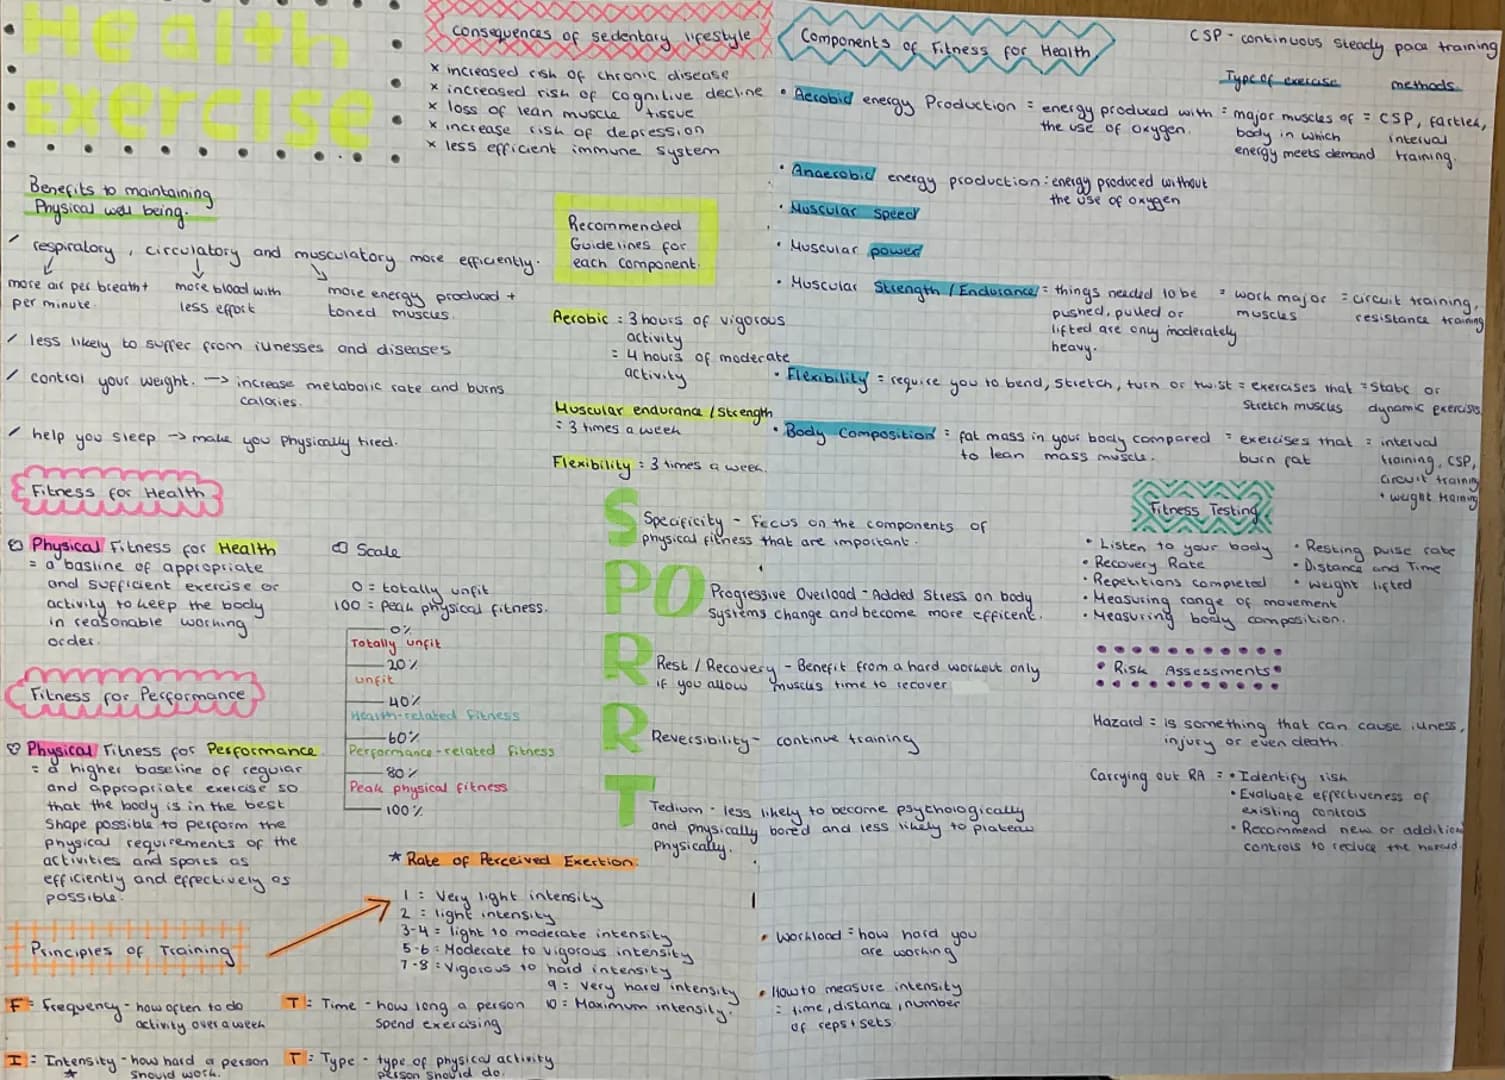 Health
Exercise
Benefits to maintaining
Physical well being.
respiratory, circulatory and musculatory more efficiently.
more air per breath +
per minute.
more blood with
less effort
more energy produced +
toned muscles.
less likely to suffer from illnesses and diseases
control your weight. → increase metabolic rate and burns
calories.
help you sleep → make you physically tired.
Fitness for Health
Physical Fitness for Health
= a basline of appropriate
and sufficient exercise or
activity to keep the body
in reasonable working
order.
Fitness for Performance
Physical Fitness for Performance
= a higher baseline of regular
and appropriate exercise so
that the body is in the best
shape possible to perform the
physical requirements of the
activities and sports as
efficiently and effectively as
possible.
Scale
0 = totally unfit
100 = peak physical fitness.
0%
Totally unfit
20%
unfit
40%
Health-related fitness
60%
Performance-related fitness
80%
Peak physical fitness
100%
Principles of Training
F = Frequency - how often to do
activity over a week
I = Intensity - how hard a person
* should work.
T = Time - how long a person
spend exercising
T = Type - type of physical activity
person should do.
* Rate of Perceived Exertion:
1 = Very light intensity
2 = light intensity
3-4 = light to moderate intensity
5-6 = Moderate to vigorous intensity
7-8 = Vigorous to hard intensity
9 = Very hard intensity
10 = Maximum intensity.
consequences of sedentary lifestyle
x increased risk of chronic disease
x increased risk of cognitive decline
x loss of lean muscle tissue
x increase risk of depression
x less efficient immune system
Recommended
Guidelines for
each component.
Aerobic = 3 hours of vigorous
activity
= 4 hours of moderate
activity
Muscular endurance / Strength
= 3 times a week
Flexibility = 3 times a week.
SPORRT
Specificity - Focus on the components of
physical fitness that are important.
Progressive Overload - Added stress on body
systems change and become more efficent.
Rest / Recovery - Benefit from a hard workout only
if you allow muscles time to recover
Reversibility - continue training
Tedium - less likely to become psychologically
and physically bored and less likely to plateau
physically.
• Workload = how hard you
are working
• How to measure intensity
= time, distance, number
of reps + sets.
Components of Fitness for Health
CSP - continuous steady pace training
Type of exercise
methods
• Aerobic energy Production = energy produced with = major muscles of = CSP, fartlek,
the use of oxygen. body in which interval
energy meets demand training.
• Anaerobic energy production: energy produced without
the use of oxygen
• Muscular speed
• Muscular power
• Muscular Strength / Endurance = things needed to be = work major = circuit training,
pushed, pulled or muscles resistance training
lifted are only moderately
heavy.
• Flexibility = require you to bend, stretch, turn or twist = exercises that = Static or
stretch muscles dynamic exercises
• Body Composition = fat mass in your body compared = exercises that = interval
to lean mass muscle. burn fat training, CSP,
circuit training
+ weight training
Fitness Testing
• Listen to your body
• Recovery Rate
• Repetitions completed
• Measuring range of movement
• Measuring body composition.
• Resting pulse rate
• Distance and Time
• weight lifted
• Risk Assessments •
Hazard = is something that can cause illness,
injury or even death.
Carrying out RA = • Identify risk
• Evaluate effectiveness of
existing controls
• Recommend new or addition
controls to reduce the hazard.